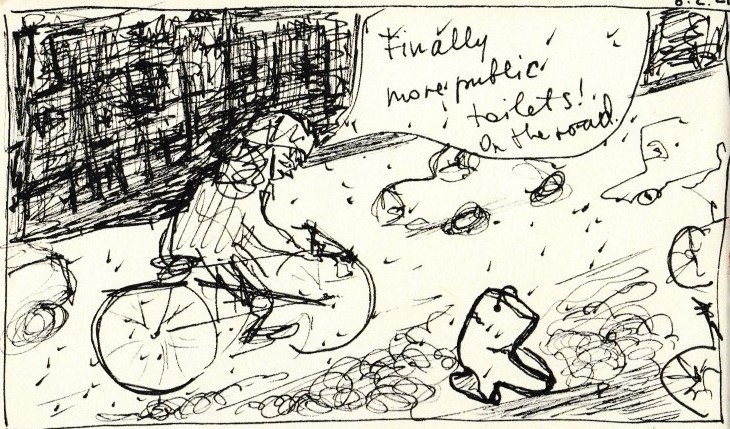 Finally
more public
toilets!
On the road